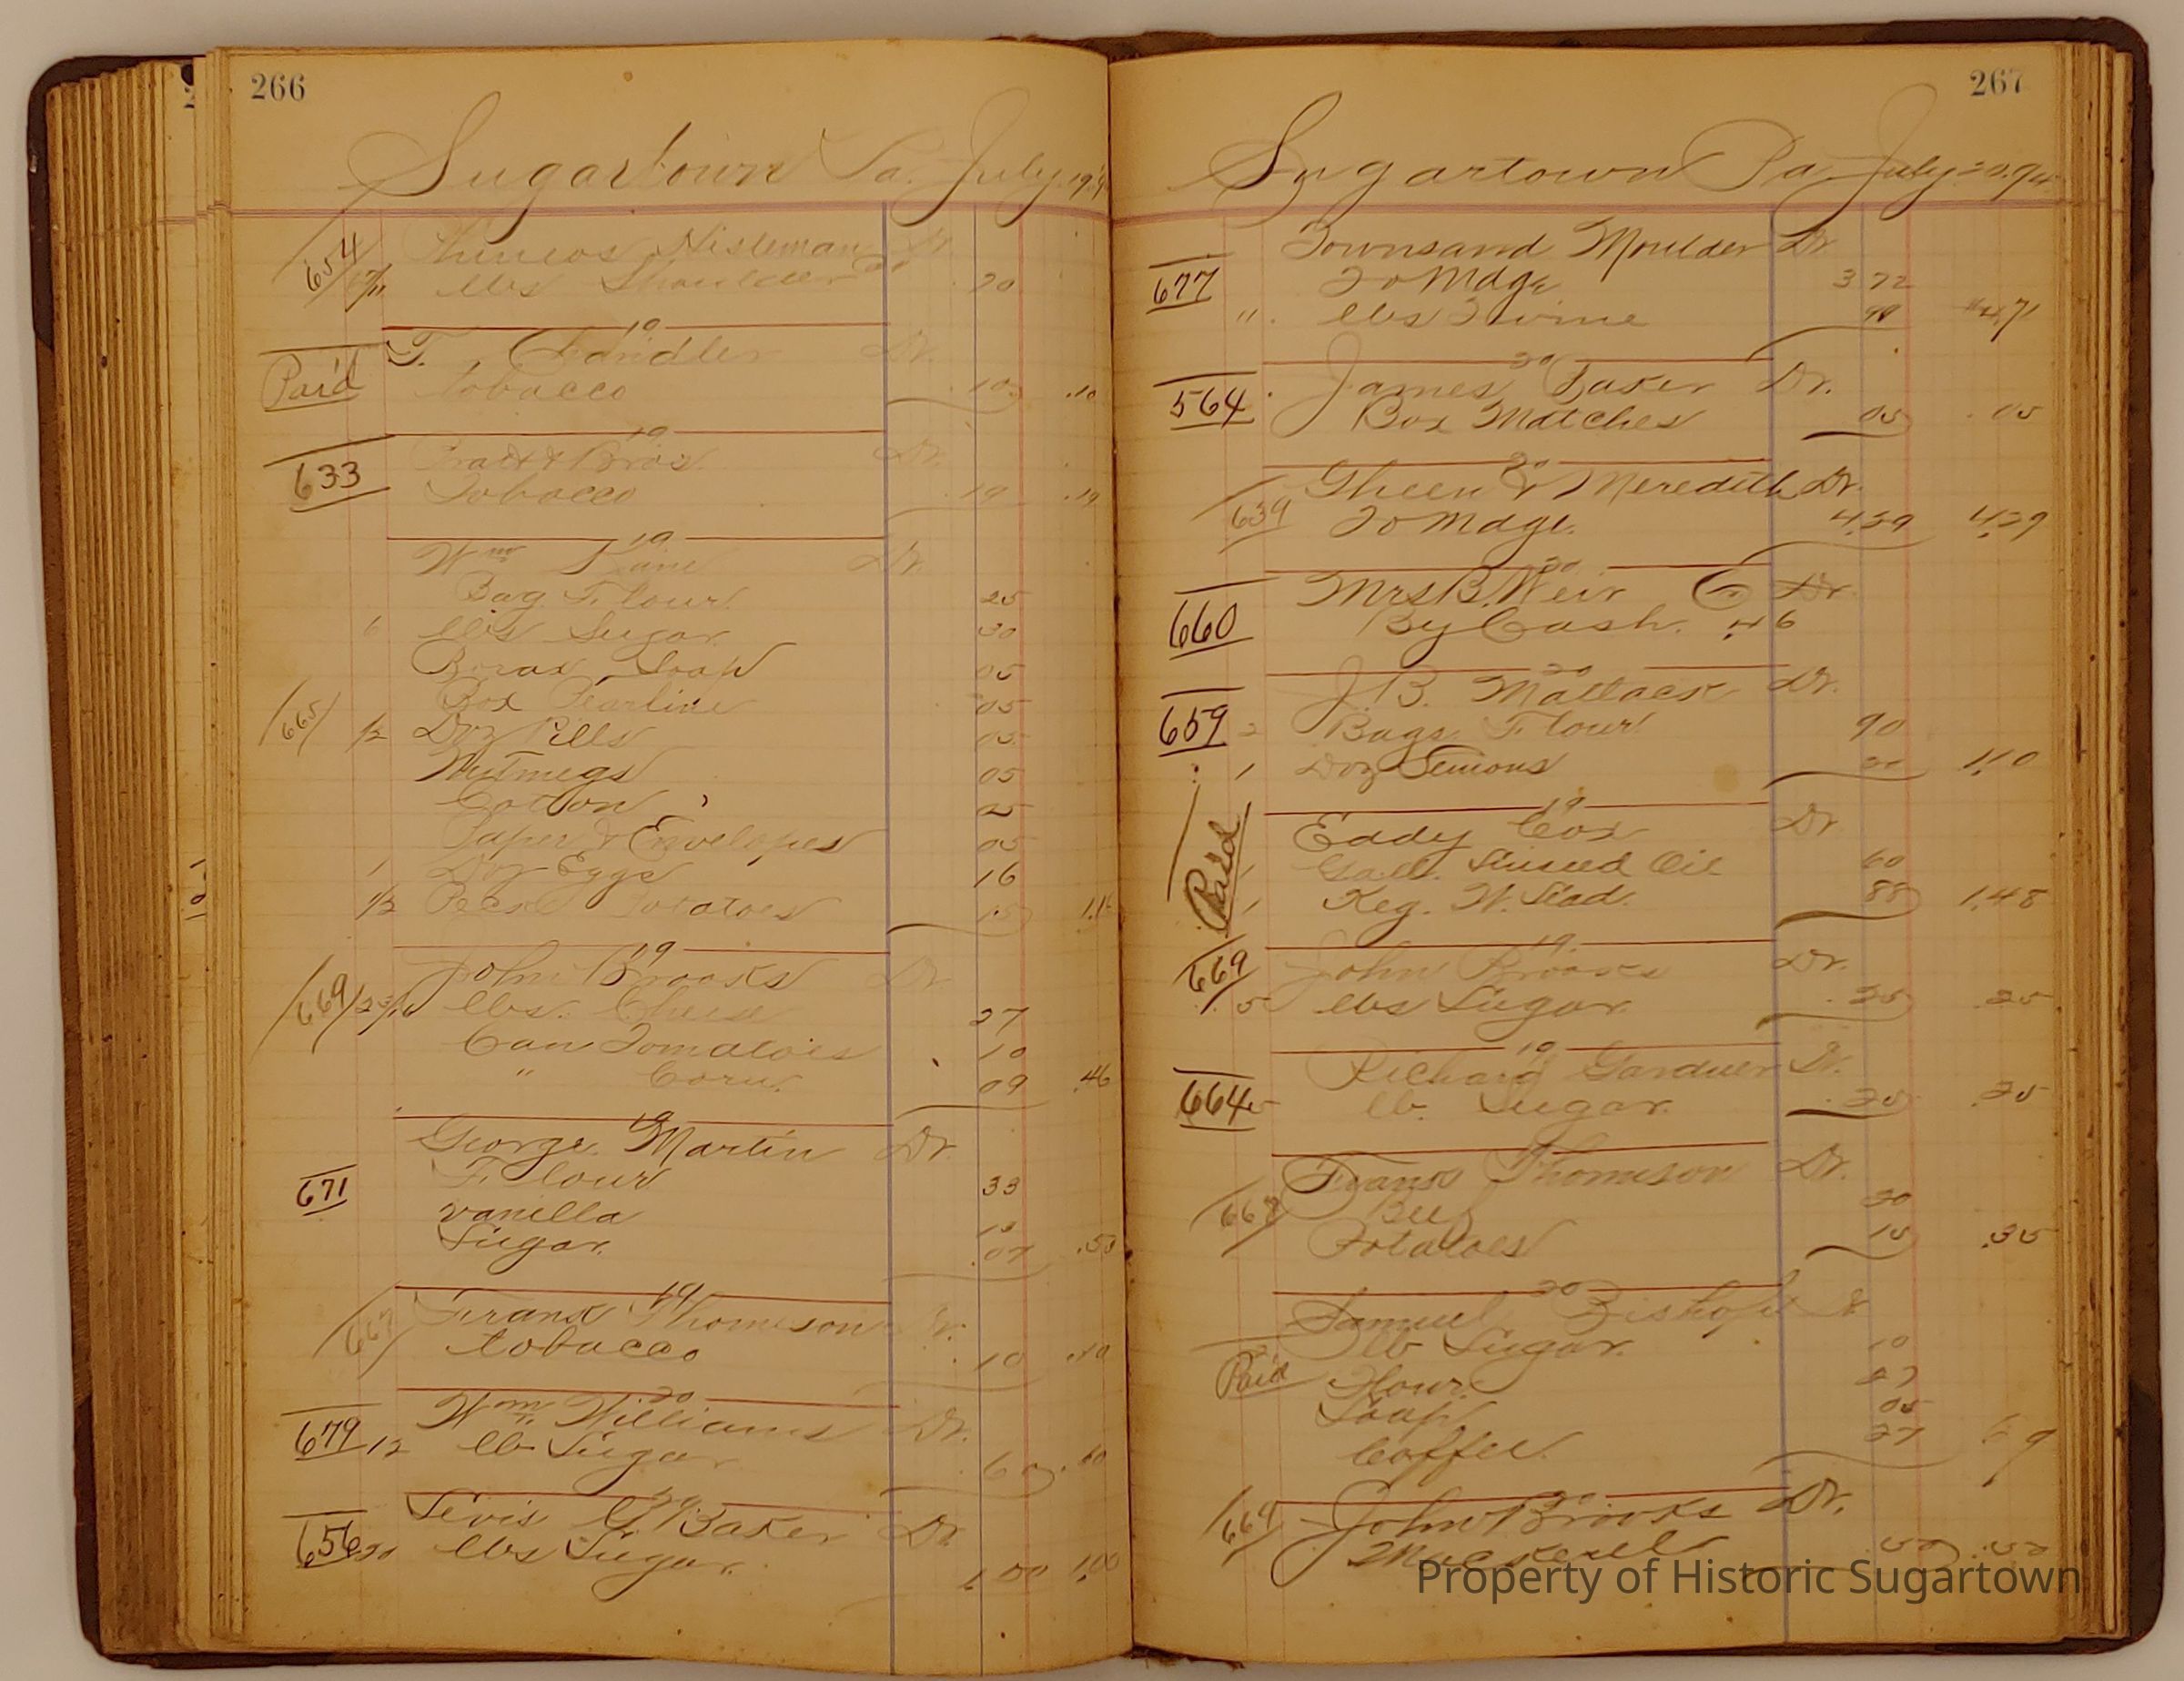 266
Sugartown Pa. July 19, 94
654
lbs Shoulder 20
19
Paid T. Chandler Dr.
tobacco 10 .10
19
633 Bros. Dr.
Tobacco 19 .19
19
Wm Lane Dr.
Bag Flour 25
6 lbs Sugar 30
Borax Soap 05
Box Pearline 05
665 1/2 Doz Pills 05
Nutmegs 05
Cotton 05
Paper & Envelopes 05
1 Doz Eggs 16
1/2 Peck Potatoes 15
19
669 John Brooks Dr.
lbs. Cheese 27
Can Tomatoes 10
" Corn. 09 .46
19
George Martin Dr.
671 Flour 33
vanilla 13
Sugar. 07 .53
19
667 Frank Thomison Dr.
tobacco 10 .10
20
679 Wm Williams Dr.
12 lb Sugar 60 .60
20
656 Levis G. Baker Dr
20 lbs Sugar. 1.00 1.00
267
Sugartown Pa July 20. 94
Townsand Moulder Dr.
677 To Mdge 3 72
" lbs Twine 99 4.71
20
564 James Baker Dr.
Box Matches 05 .05
20
Gheen & Meredith Dr.
639 To Mdge. 4.39 4.39
20
660 Mrs B. Weir Cr Dr.
By Cash. .46
20
J. B. Mattack Dr.
659 2 Bags Flour 90
1 Doz Lemons 20 1.10
19
Paid Eddy Cox Dr
1 Gall. Linseed Oil 60
1 Keg. W. Lead. 88 1.48
19.
669 John Brooks Dr.
5 lbs Sugar. 25 .25
19
Richard Gardner Dr.
664 5 lb. Sugar. .25 .25
Frank Thomison Dr.
668 Beef 20
Potatoes 15 .35
20
Samuel Bishop Dr
lb Sugar. 10
Paid Flour. 27
Soap 05
Coffee. 27 69
20
669 John Brooks Dr.
Mackerell .50 .50
Property of Historic Sugartown